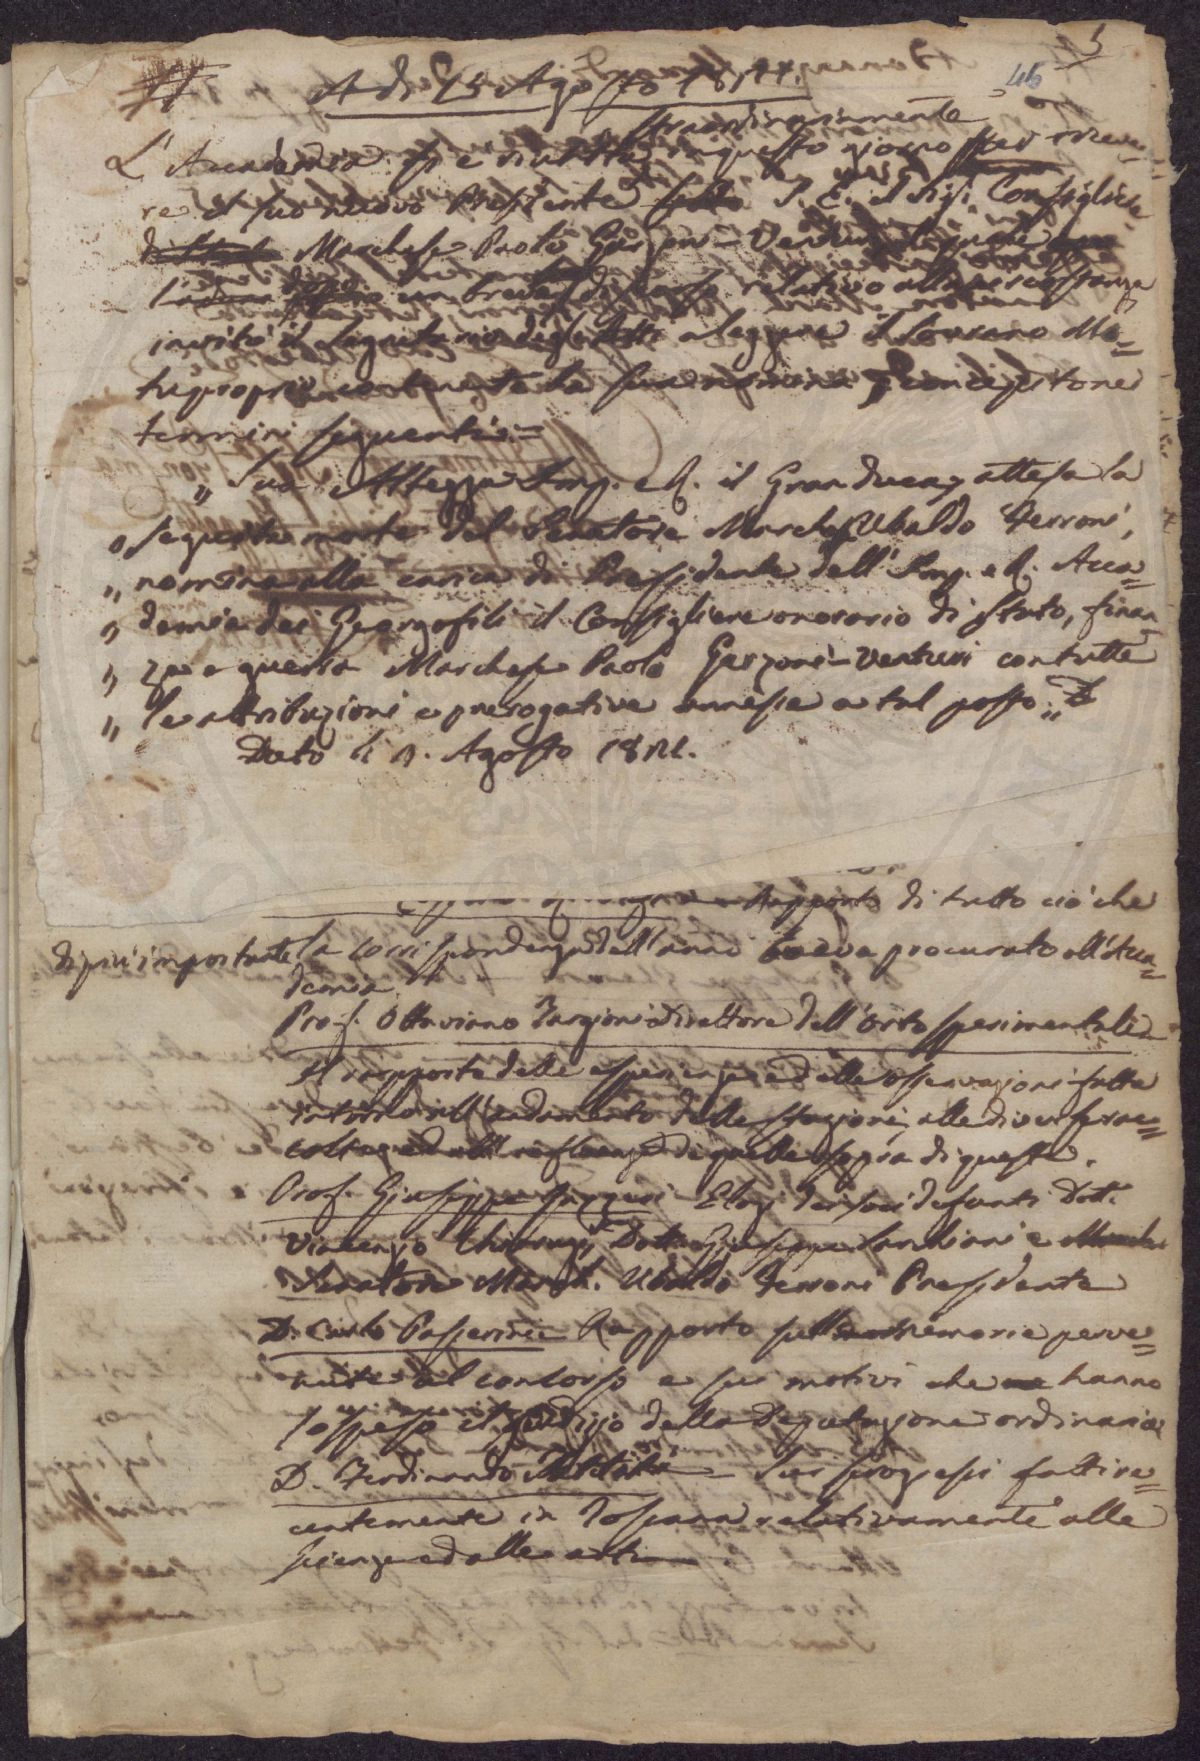 5
46
A dì 15 Agosto 1822.
straordinariamente
L'Accademia si è riunita in questo giorno per riceve=
re il suo nuovo Presidente S. E. il Sig. Consigliere
Marchese Paolo Garzoni-Venturi il quale
un breve discorso relativo alla circostanza
invitò il Segretario degli Atti a leggere il Sovrano Mo=
tuproprio contenente la sua nomina e concepito nei
termini seguenti=
„ Sua Altezza Imp. e R. il Granduca, attesa la
„ seguita morte del Senatore March. Ubaldo Ferroni,
„ nomina alla carica di Presidente dell'Imp. e R. Acca=
„ demia dei Georgofili il Consigliere onorario di Stato, finan
„ ze e guerra Marchese Paolo Garzoni-Venturi con tutte
„ le attribuzioni e prerogative annesse a tal posto „
Dato li Agosto 1822.
Rapporto di tutto ciò che
di più importante la corrispondenza dell'anno aveva procurato all'Acca=
demia
Prof. Ottaviano Targioni direttore dell'Orto sperimentale=
Il rapporto delle esperienze ed alle osservazioni fatte
intorno all'andamento delle stagioni, alle diverse rac=
colte ed all'influenza di quelle sopra di queste.
Prof. Giuseppe Gazzeri Elogi dei soci defunti Dott.
Vincenzo Chiarugi, Dott. Giuseppe Sarchiani e
Senatore March. Ubaldo Ferroni Presidente
D. Carlo Passerini Rapporto sulle memorie perve=
nute al concorso e sui motivi che hanno
sospeso il giudizio della Deputazione ordinaria
D. Ferdinando Sui progressi fatti re=
centemente in Toscana relativamente alle
scienze ed alle arti